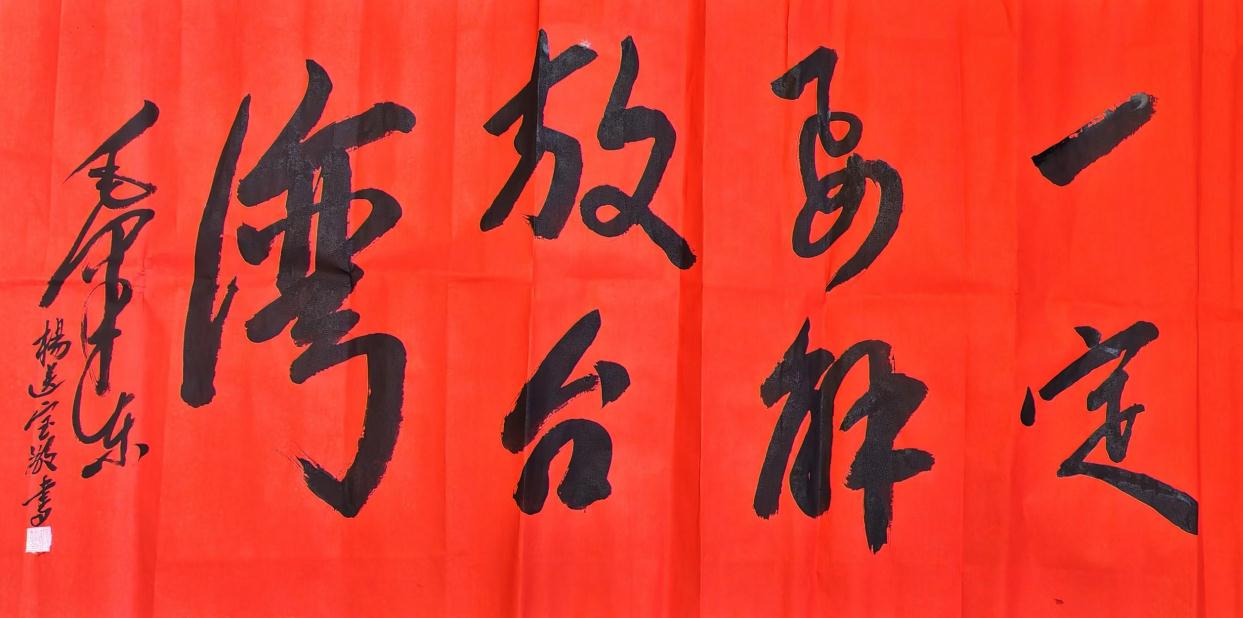 一定
要解
放台
湾
毛泽东
楊送宝敬書